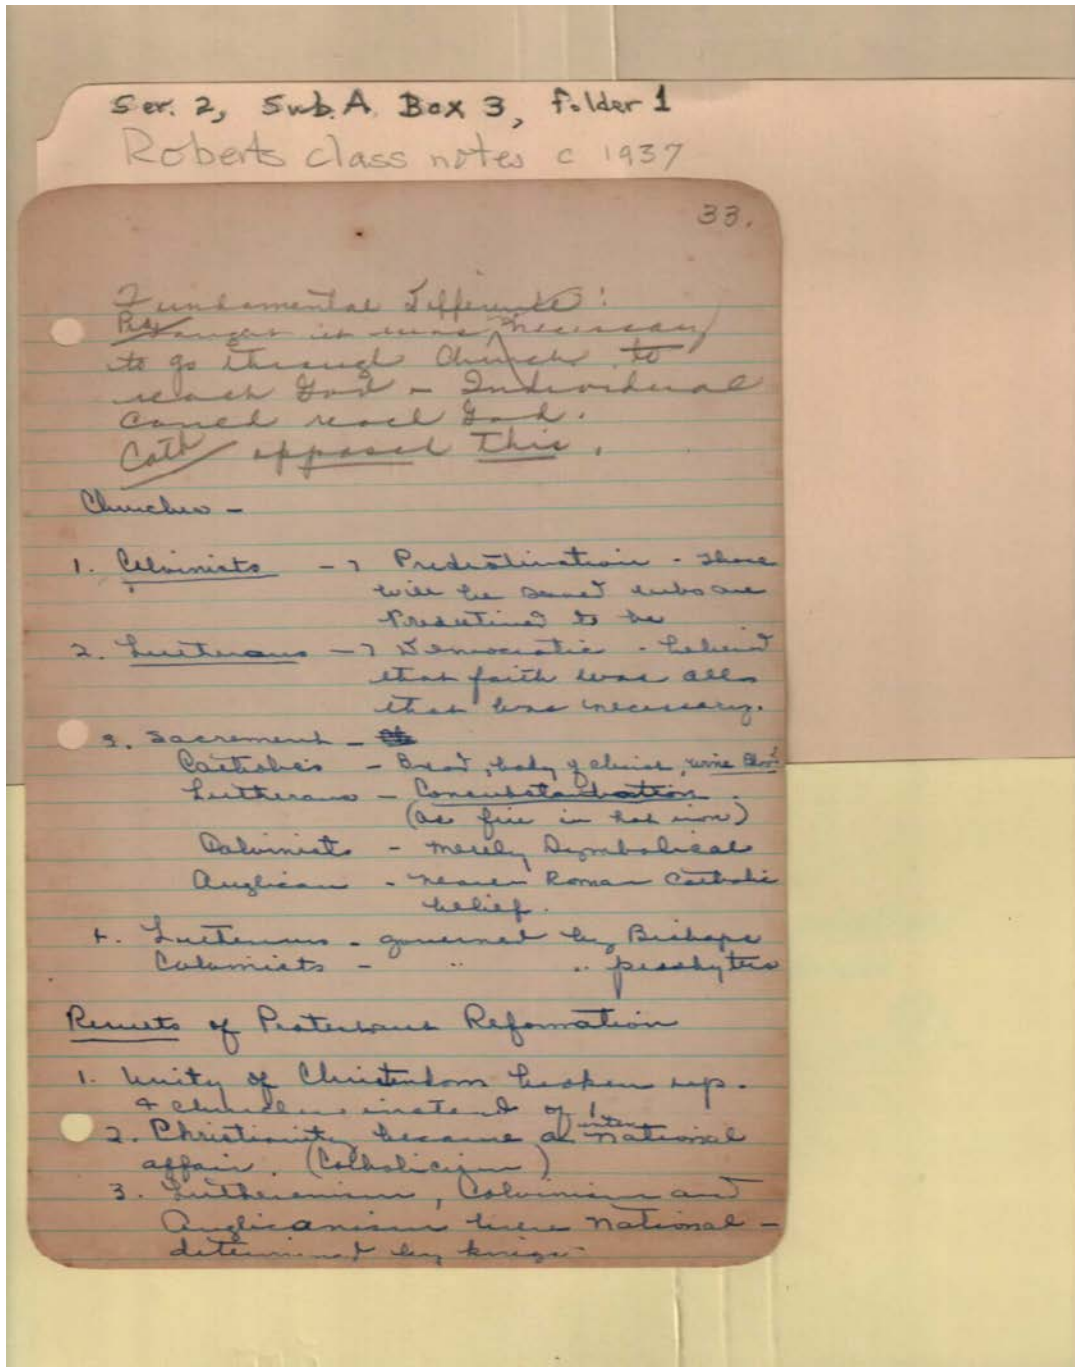 Ser. 2, Sub. A Box 3, folder 1
Roberts class notes c 1937
33.
Fundamental Difference:
it was necessary
to go through Church to
reach God - Individual
could reach God.
Cath opposed this.
Churches -
1. Calvinists - Predestination - those
will be saved who are
Predestined to be
2. Lutherans - Democratic - believed
that faith was all
that was necessary.
3. Sacrament -
Catholics - Bread, body of christ, wine blood
Lutherans - Consubstantiation.
(as fire in hot iron)
Calvinists - merely Symbolical
Anglican - nearer Roman Catholic
belief.
4. Lutherans - governed by Bishops
Calvinists - " " presbyters
Results of Protestant Reformation
1. Unity of Christendom broken up.
4 churches instead of 1
2. Christianity became a international
affair. (Catholicism)
3. Lutheranism, Calvinism and
Anglicanism were national -
determined by kings-